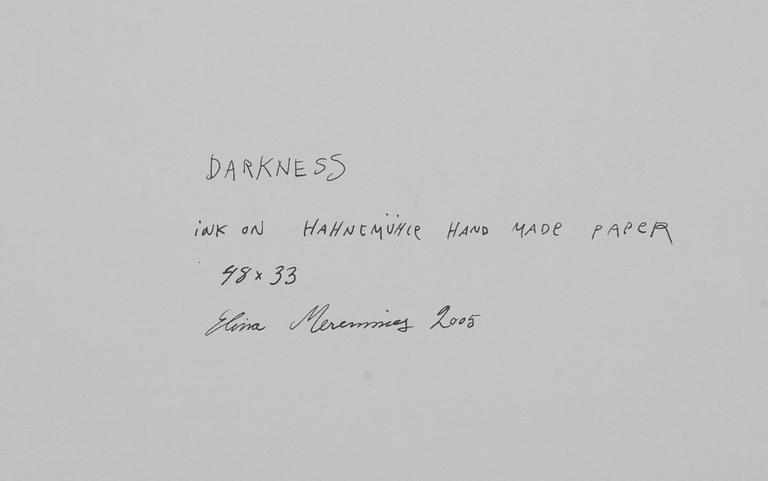 DARKNESS
iNK ON HAHNEMÜHLE HAND MADE PAPER
48 x 33
Elina Merenmies 2005